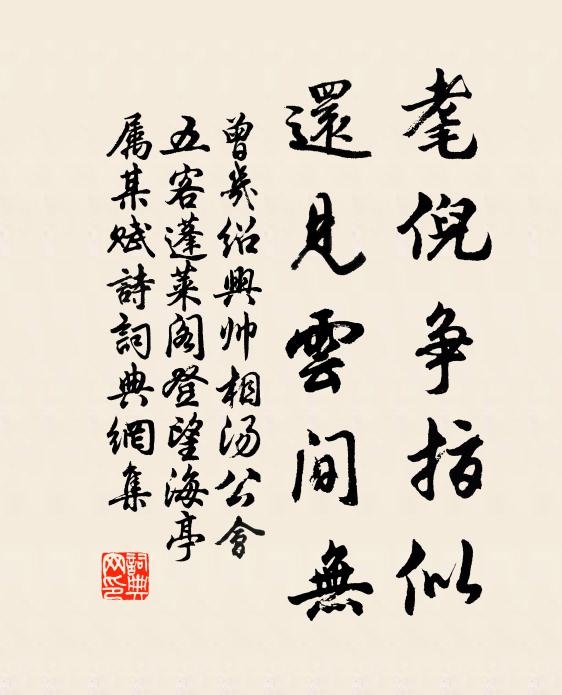 耄倪争指似
還見雲間無
曾幾绍興帅相汤公會
五客蓬莱阁登望海亭
属某赋詩詞典網集
詞典網印